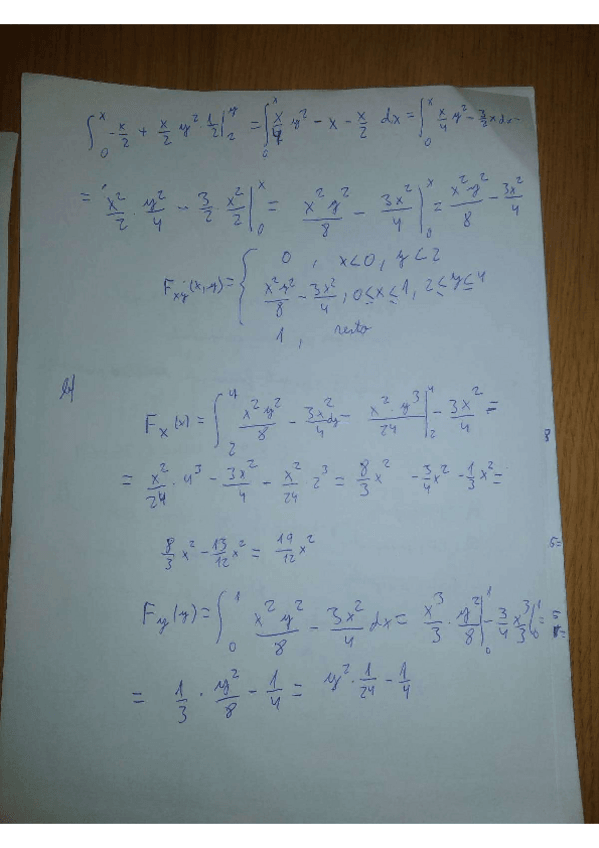 ∫₀ˣ -x/2 + x/2 y² · 1/2 |₂^y = ∫₀ˣ x/4 y² - x - x/2 dx = ∫₀ˣ x/4 y² - 3/2 x dx =
= x²/2 · y²/4 - 3/2 · x²/2 |₀ˣ = x² y²/8 - 3x²/4 |₀ˣ = x² y²/8 - 3x²/4
F_xy(x,y) = { 0 , x<0, y<2
x² y²/8 - 3x²/4 , 0≤x≤1, 2≤y≤4
1 , resto
b)
F_x(x) = ∫₂⁴ x² y²/8 - 3x²/4 dy = x² · y³/24 |₂⁴ - 3x²/4 =
= x²/24 · 4³ - 3x²/4 - x²/24 2³ = 8/3 x² - 3/4 x² - 1/3 x² =
8/3 x² - 13/12 x² = 19/12 x²
F_y(y) = ∫₀¹ x² y²/8 - 3x²/4 dx = x³/3 · y²/8 |₀¹ - 3/4 x³/3 |₀¹ =
= 1/3 · y²/8 - 1/4 = y² · 1/24 - 1/4